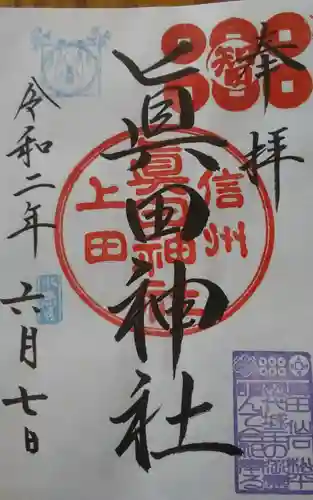 奉拝
智
眞田神社
信州
眞田神社
上田
令和二年
六月七日